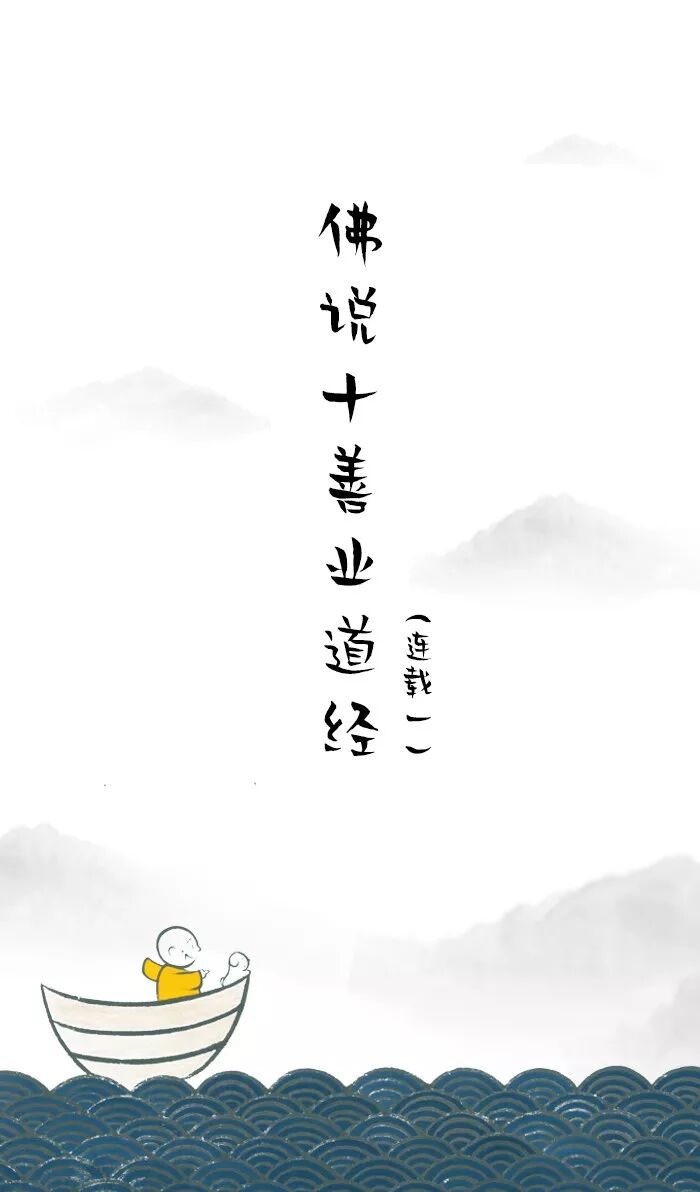 佛说十善业道经
（连载一）